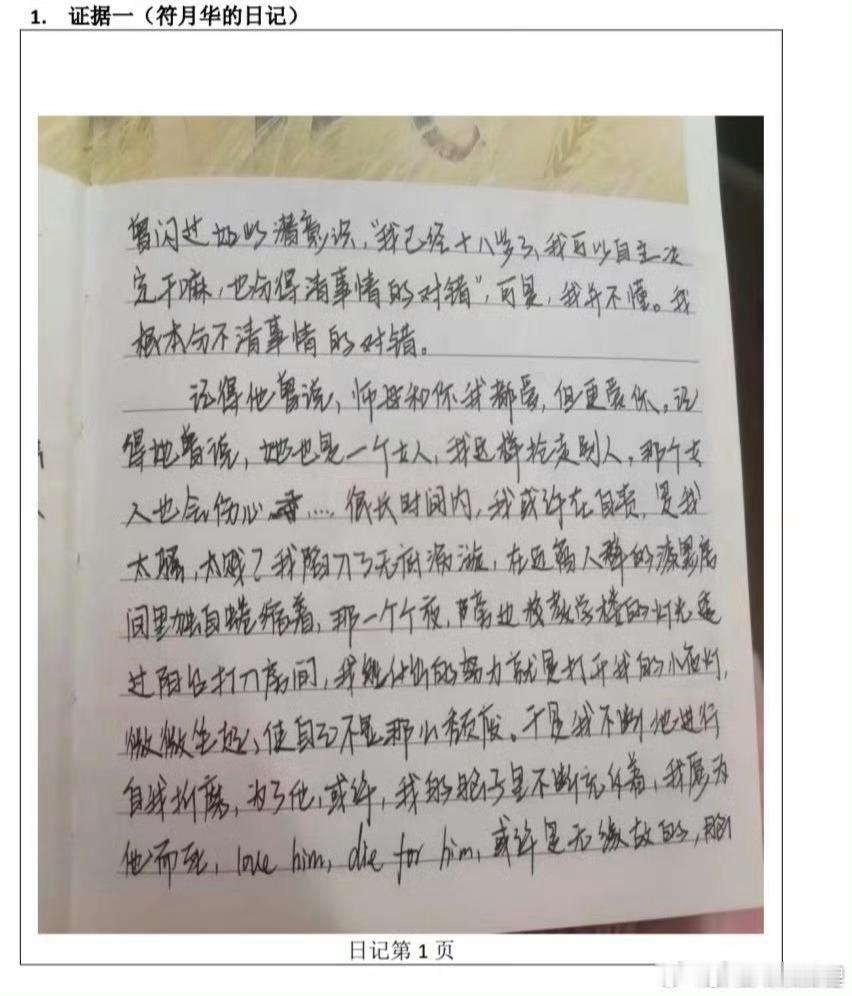 1. 证据一（符月华的日记）
曾闪过她的潜意识，“我已经十八岁了、我可以自主决
定干嘛，也分得清事情的对错”，可是，我并不懂。我
根本分不清事情的对错。
记得他曾说，师母和你我都爱，但更爱你。记
得他曾说，她也是一个女人，我这样抢走别人，那个女
人也会伤心……很长时间内，我或许在自责，是我
太骚，太贱？我陷入了无底漩涡，在远离人群的漆黑房
间里独自蜷缩着，那一个个夜，隔边校教学楼的灯光透
过阳台打入房间，我能付出的努力就是打开我的小夜灯，
微微坐起，使自己不显那么颓废。于是我不断地进行
自我折磨，为了他，或许，我的脑子里不断充斥着，我愿为
他而死，love him, die for him, 或许是无缘故的，脑
日记第 1 页